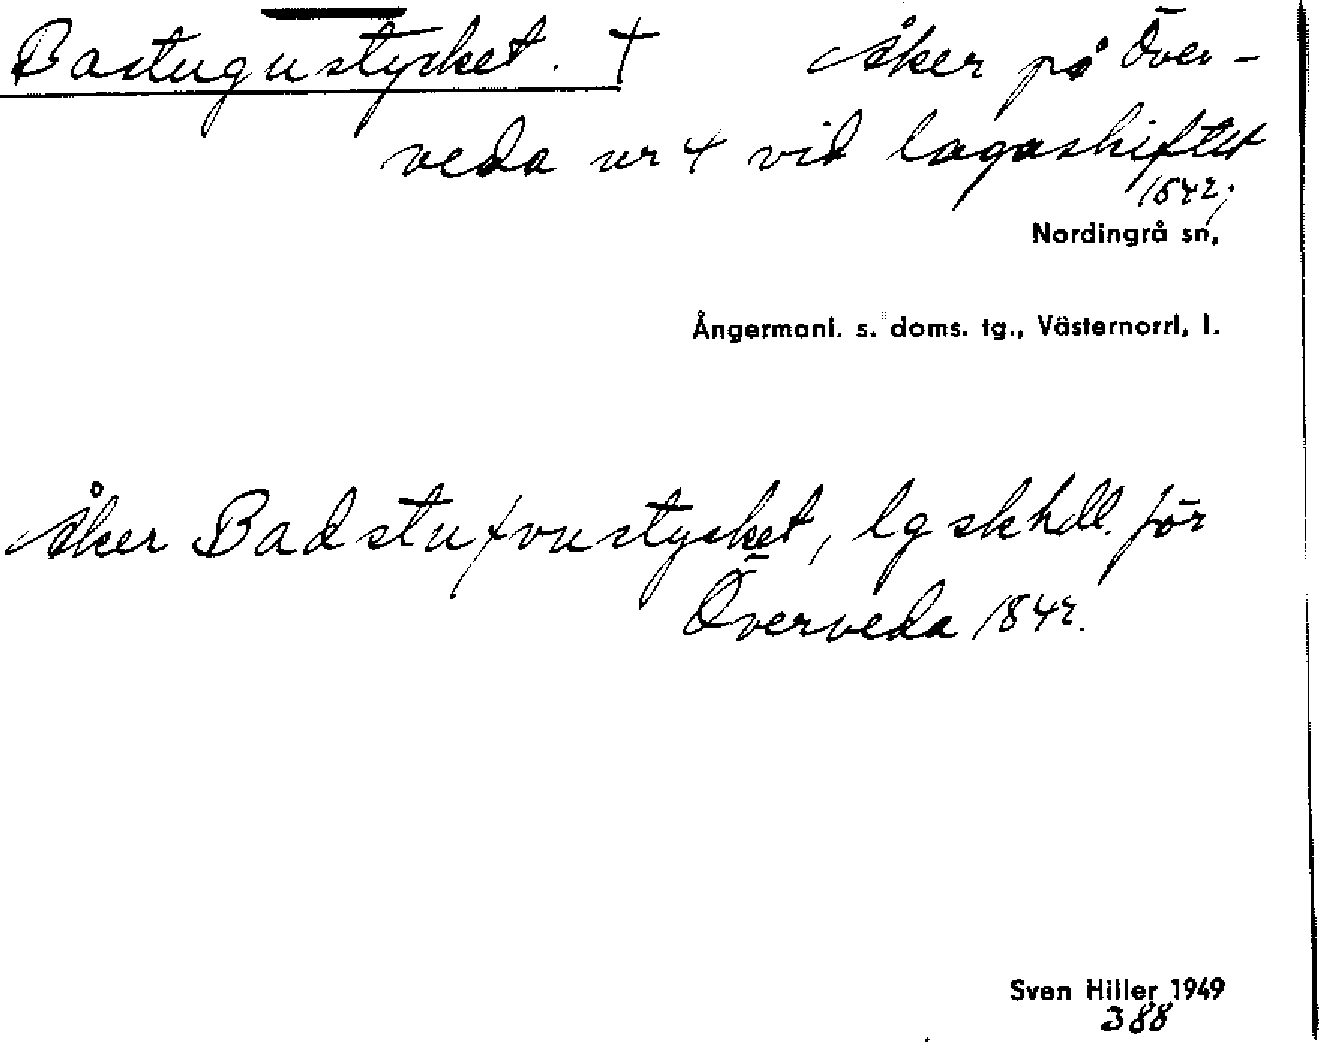 Bastugustycket. † åker på Över-
veda nr 4 vid lagaskiftet
1842;
Nordingrå sn,
Ångermanl. s. doms. tg., Västernorrl. l.
åker Badstufvustycket, lgskhdl. för
Överveda 1842.
Sven Hiller 1949
388